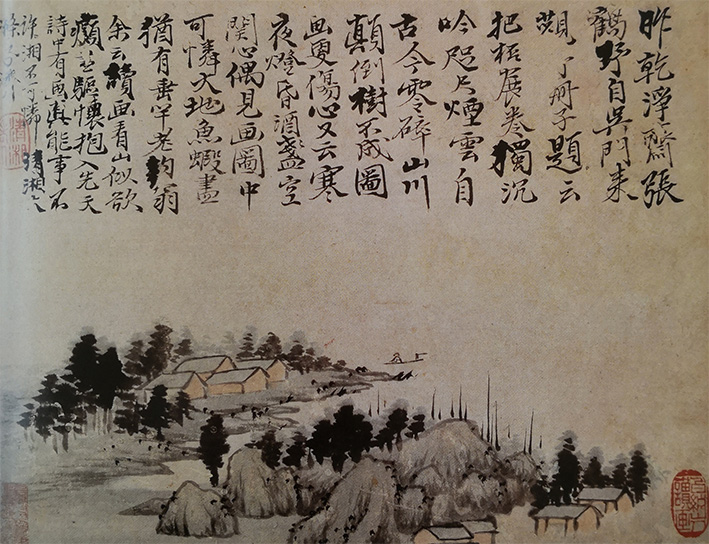 昨乾淨齋張
鶴野自吳門來
觀予冊子題云
把杯展卷獨沉
吟咫尺煙雲自
古今零碎山川
顛倒樹不成圖
画更傷心又云寒
夜燈昏酒盞空
関心偶見画圖中
可憐大地魚蝦盡
猶有垂竿老釣翁
余云讀画看山似欲
癲盡驅懷抱入先天
詩中有画真能事不
許湘不可憐 清湘大
滌子濟